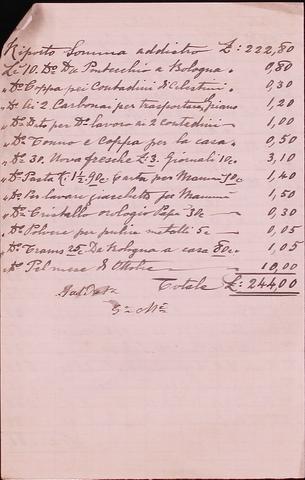 Riporto Somma addietro £: 222,80
Li 10. Do Da Pontecchio a Bologna. 0,80
" Do Coppa pei Contadini di Celestini 0,30
" Do Ai 2 Carbonai per trasportare al piano 1,20
" Do Dato per Do lavoro ai 2 contadini 1,00
" Do Tonno e Coppa per la casa. 0,50
" Do 30. Nova fresche £3. Giornali 10c. 3,10
" Do Pasta K. 1½. 90c. Carta per Mamma 50c. 1,40
" Do Per lavare giacchetto per Mamma 1,50
" Do Cristallo orologio Papà 30c 0,30
" Do Polvere per pulire metalli 5c 0,05
" Do Trams 25c. Da Bologna a casa 80c. 1,05
" Do Pel mese di Ottobre 10,00
Totale £: 244,00